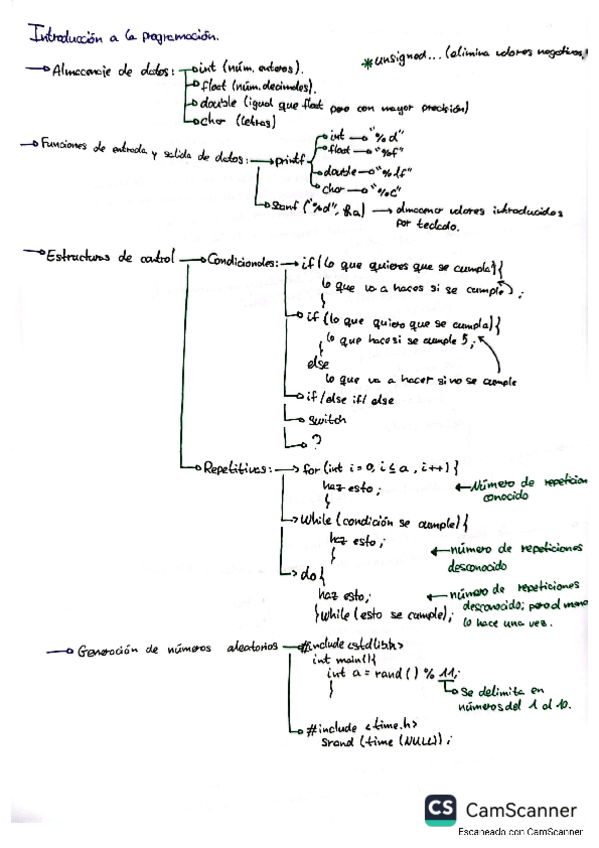 Introducción a la programación.
*unsigned... (elimina valores negativos)
Almacenaje de datos: int (núm. enteros).
float (núm. decimales).
double (igual que float pero con mayor precisión)
char (letras)
Funciones de entrada y salida de datos: printf
int → "%d"
float → "%f"
double → "%lf"
char → "%c"
scanf ("%d", &a) → almacenar valores introducidos
por teclado.
Estructuras de control → Condicionales: → if (lo que quieres que se cumpla) {
lo que va a hacer si se cumple;
}
if (lo que quiero que se cumpla) {
lo que hace si se cumple;
}
else
lo que va a hacer si no se cumple
if / else if / else
switch
?
Repetitivas: → for (int i = 0, i ≤ a, i++) {
haz esto;
}
← Número de repeticion
conocido
While (condición se cumple) {
haz esto;
}
← número de repeticiones
desconocido
do {
haz esto;
} while (esto se cumple);
← número de repeticiones
desconocido; pero al meno
lo hace una vez.
Generación de números aleatorios → #include <stdlib.h>
int main() {
int a = rand () % 11;
}
Se delimita en
números del 1 al 10.
#include <time.h>
Srand (time (NULL));
CS CamScanner
Escaneado con CamScanner